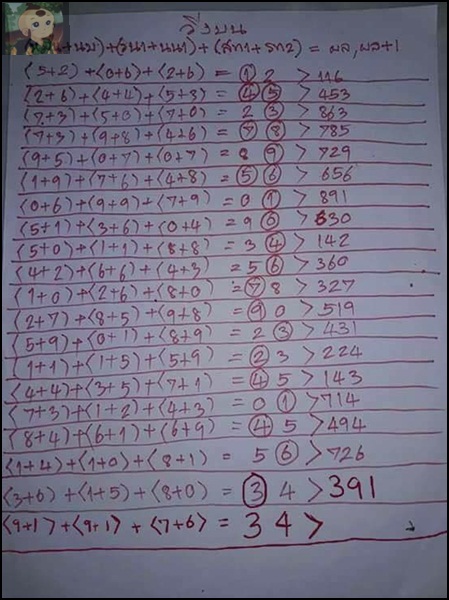 วิ่งบน
+นบ)+(วัน1+นน1)+(สท1+รท2) = ผล,ผล+1
(5+2)+(0+6)+(2+6) = 1 2 > 116
(2+6)+(4+4)+(5+8) = 4 5 > 453
(7+3)+(5+0)+(7+0) = 2 3 > 863
(7+3)+(9+8)+(4+6) = 7 8 > 785
(9+5)+(0+7)+(0+7) = 8 9 > 729
(1+9)+(7+6)+(4+8) = 5 6 > 656
(0+6)+(9+9)+(7+9) = 0 1 > 891
(5+1)+(3+6)+(0+4) = 9 6 > 630
(5+0)+(1+1)+(8+8) = 3 4 > 142
(4+2)+(6+6)+(4+3) = 5 6 > 360
(1+0)+(2+6)+(8+0) = 7 8 > 327
(2+7)+(8+5)+(9+8) = 9 0 > 519
(5+9)+(0+1)+(8+9) = 2 3 > 431
(1+1)+(1+5)+(5+9) = 2 3 > 224
(4+4)+(3+5)+(7+1) = 4 5 > 143
(7+3)+(1+2)+(4+3) = 0 1 > 714
(8+4)+(6+1)+(6+9) = 4 5 > 494
(1+4)+(1+0)+(8+1) = 5 6 > 726
(3+6)+(1+5)+(8+0) = 3 4 > 391
(9+1)+(9+1)+(7+6) = 3 4 >